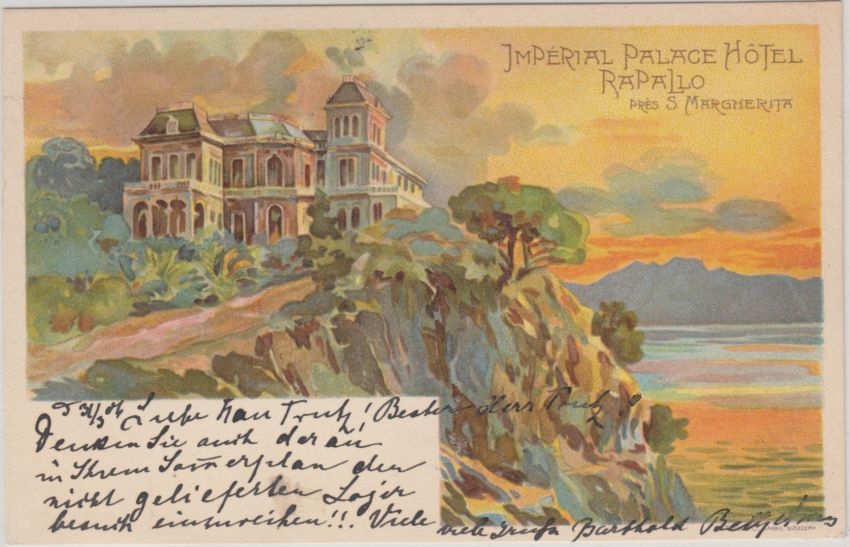 IMPÉRIAL PALACE HÔTEL
RAPALLO
PRÈS S. MARGHERITA
Liebe Frau Trutz! Bester Herr
Denken Sie auch daran
in Ihrem Som̅erplan den
nicht gelieferten
einzureihen!! Viele
viele Grüße Barthold